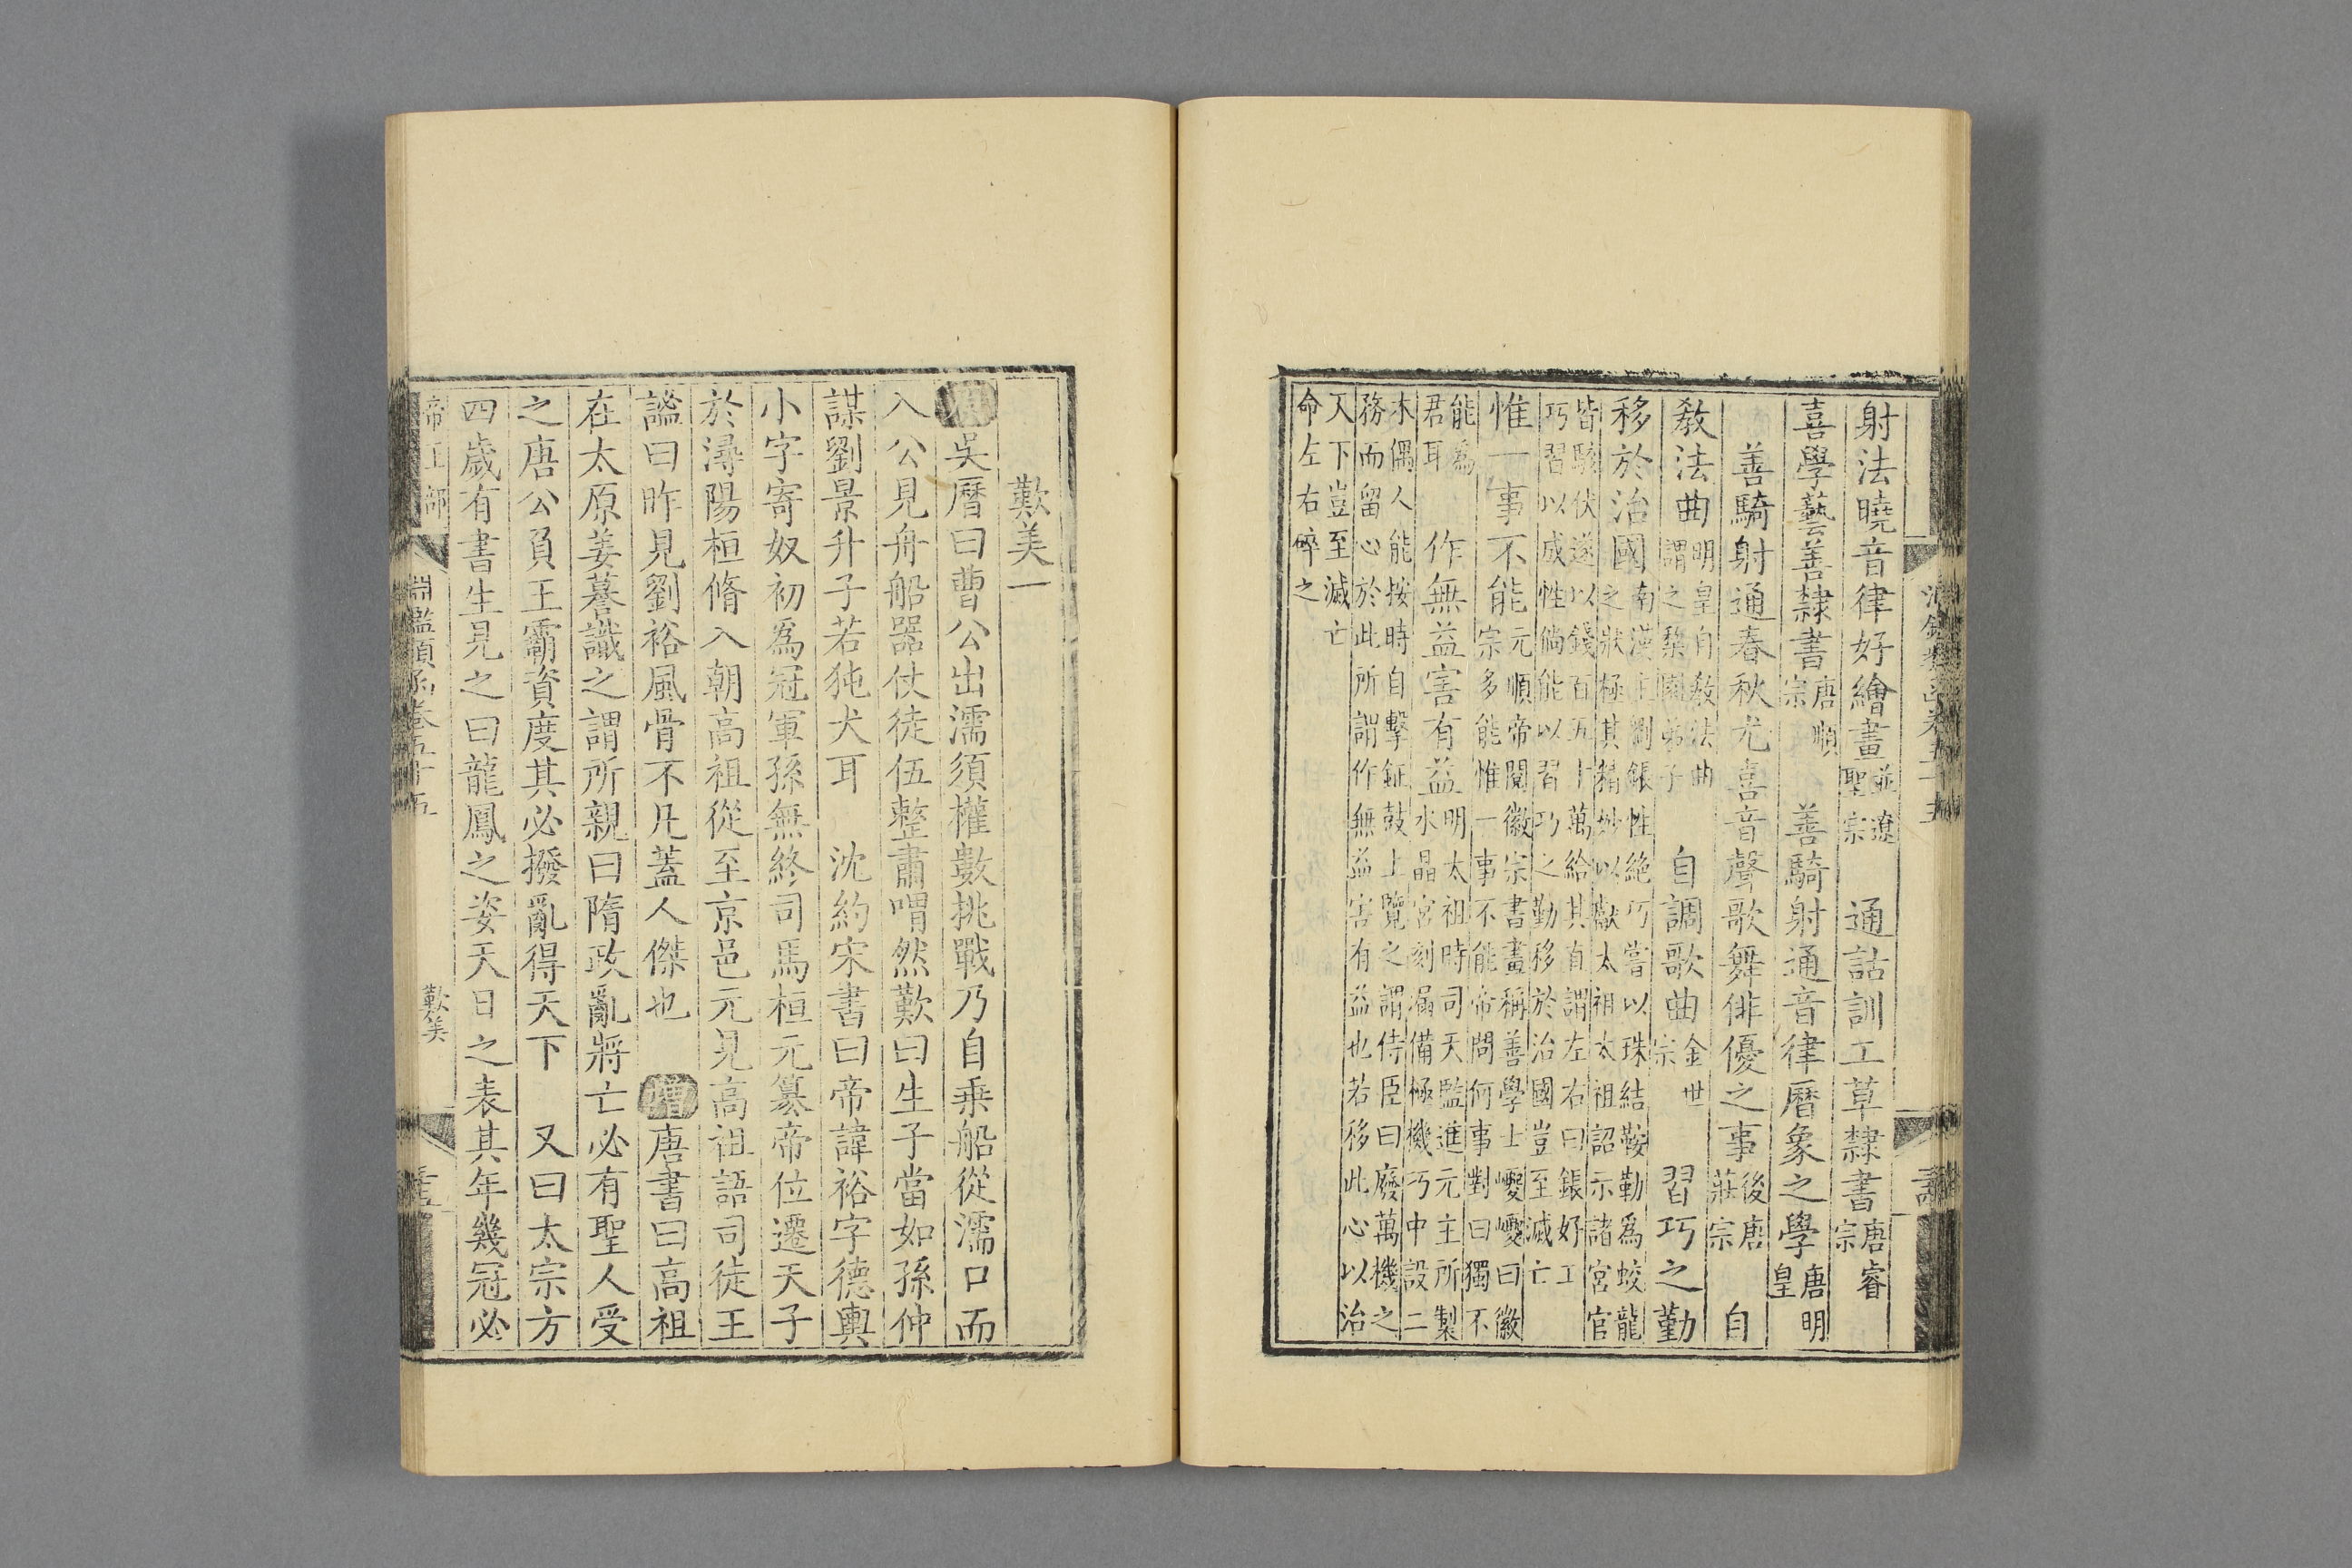 射法曉音律好繪畫並遼聖宗　通詁訓工草隸書唐睿宗
喜學藝善隸書唐順宗　善騎射通音律曆象之學唐明皇
善騎射通春秋尤喜音聲歌舞俳優之事後唐莊宗　自
教法曲明皇自敎法曲謂之梨園弟子　自調歌曲金世宗　習巧之勤
移於治國南漢主劉鋹性絶巧嘗以珠結鞍勒爲蛟龍之狀極其精妙以獻太祖太祖詔示諸宮官
皆駭伏遂以錢百五十萬給其直謂左右曰鋹好工巧習以成性倘能以習巧之勤移於治國豈至滅亡
惟一事不能元順帝閱徽宗書畫稱善學士巙巙曰徽宗多能惟一事不能帝問何事對曰獨不
能爲君耳　作無益害有益明太祖時司天監進元主所製水晶宮刻漏備極機巧中設二
木偶人能按時自擊鉦鼓上覽之謂侍臣曰廢萬機之務而留心於此所謂作無益害有益也若移此心以治
天下豈至滅亡命左右碎之
歎美一
吳曆曰曹公出濡須權數挑戰乃自乗船從濡口而
入公見舟船器仗徒伍整肅喟然歎曰生子當如孫仲
謀劉景升子若㹠犬耳　沈約宋書曰帝諱裕字德輿
小字寄奴初爲冠軍孫無終司馬桓元簒帝位遷天子
於潯陽桓脩入朝高祖從至京邑元見高祖語司徒王
謐曰昨見劉裕風骨不凡蓋人傑也　增唐書曰高祖
在太原姜謩識之謂所親曰隋政亂將亡必有聖人受
之唐公負王霸資度其必撥亂得天下　又曰太宗方
四歲有書生見之曰龍鳳之姿天日之表其年幾冠必
帝王部　淵鑑類函卷五十五　歎美